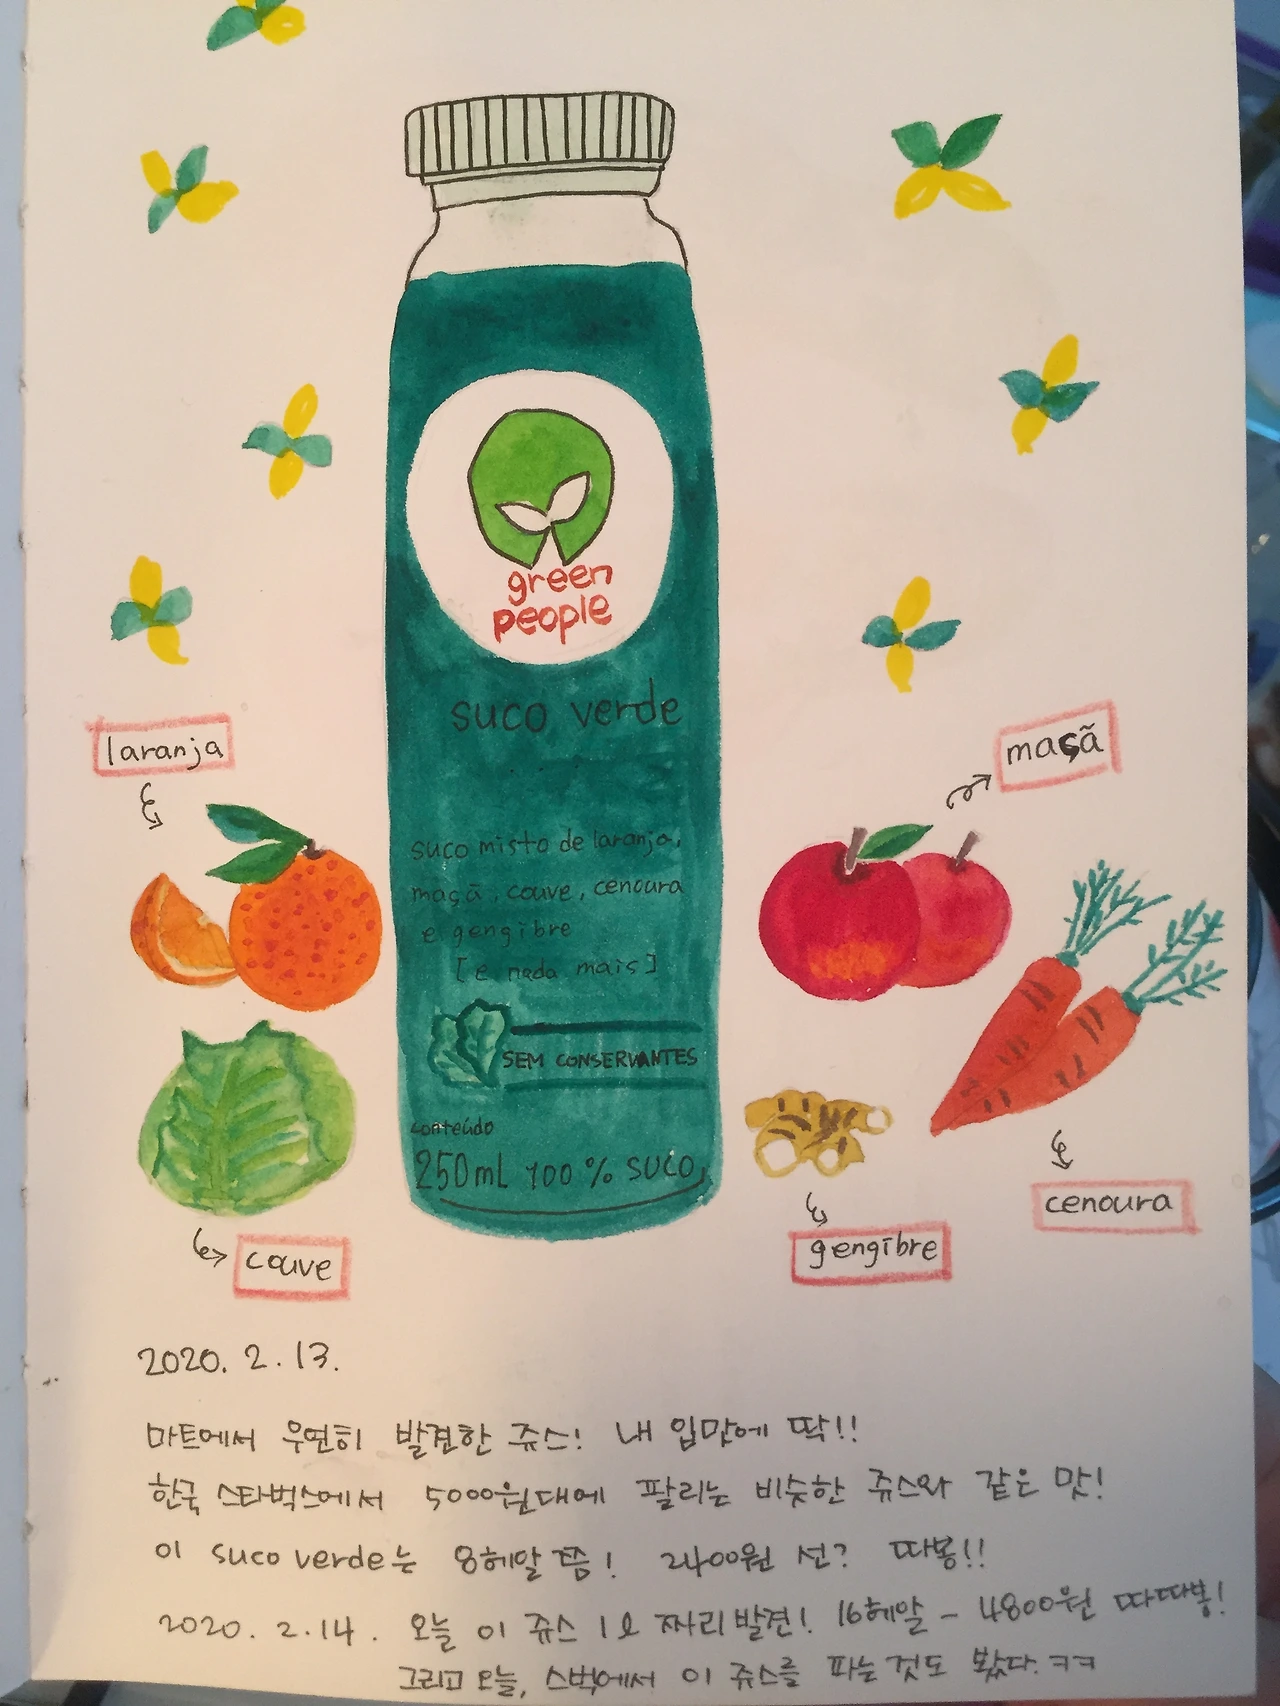 green
people
suco verde
suco misto de laranja,
maçã, couve, cenoura
e gengibre
[e nada mais]
SEM CONSERVANTES
conteúdo
250mL 100% SUCO
laranja
maçã
couve
gengibre
cenoura
2020. 2. 13.
마트에서 우연히 발견한 쥬스! 내 입맛에 딱!!
한국 스타벅스에서 5000원대에 팔리는 비슷한 쥬스와 같은 맛!
이 suco verde는 8헤알쯤! 2400원 선? 따봉!!
2020. 2. 14. 오늘 이 쥬스 1ℓ 짜리 발견! 16헤알 - 4800원 따따봉!
그리고 오늘, 스벅에서 이 쥬스를 파는 것도 봤다. ㅋㅋ